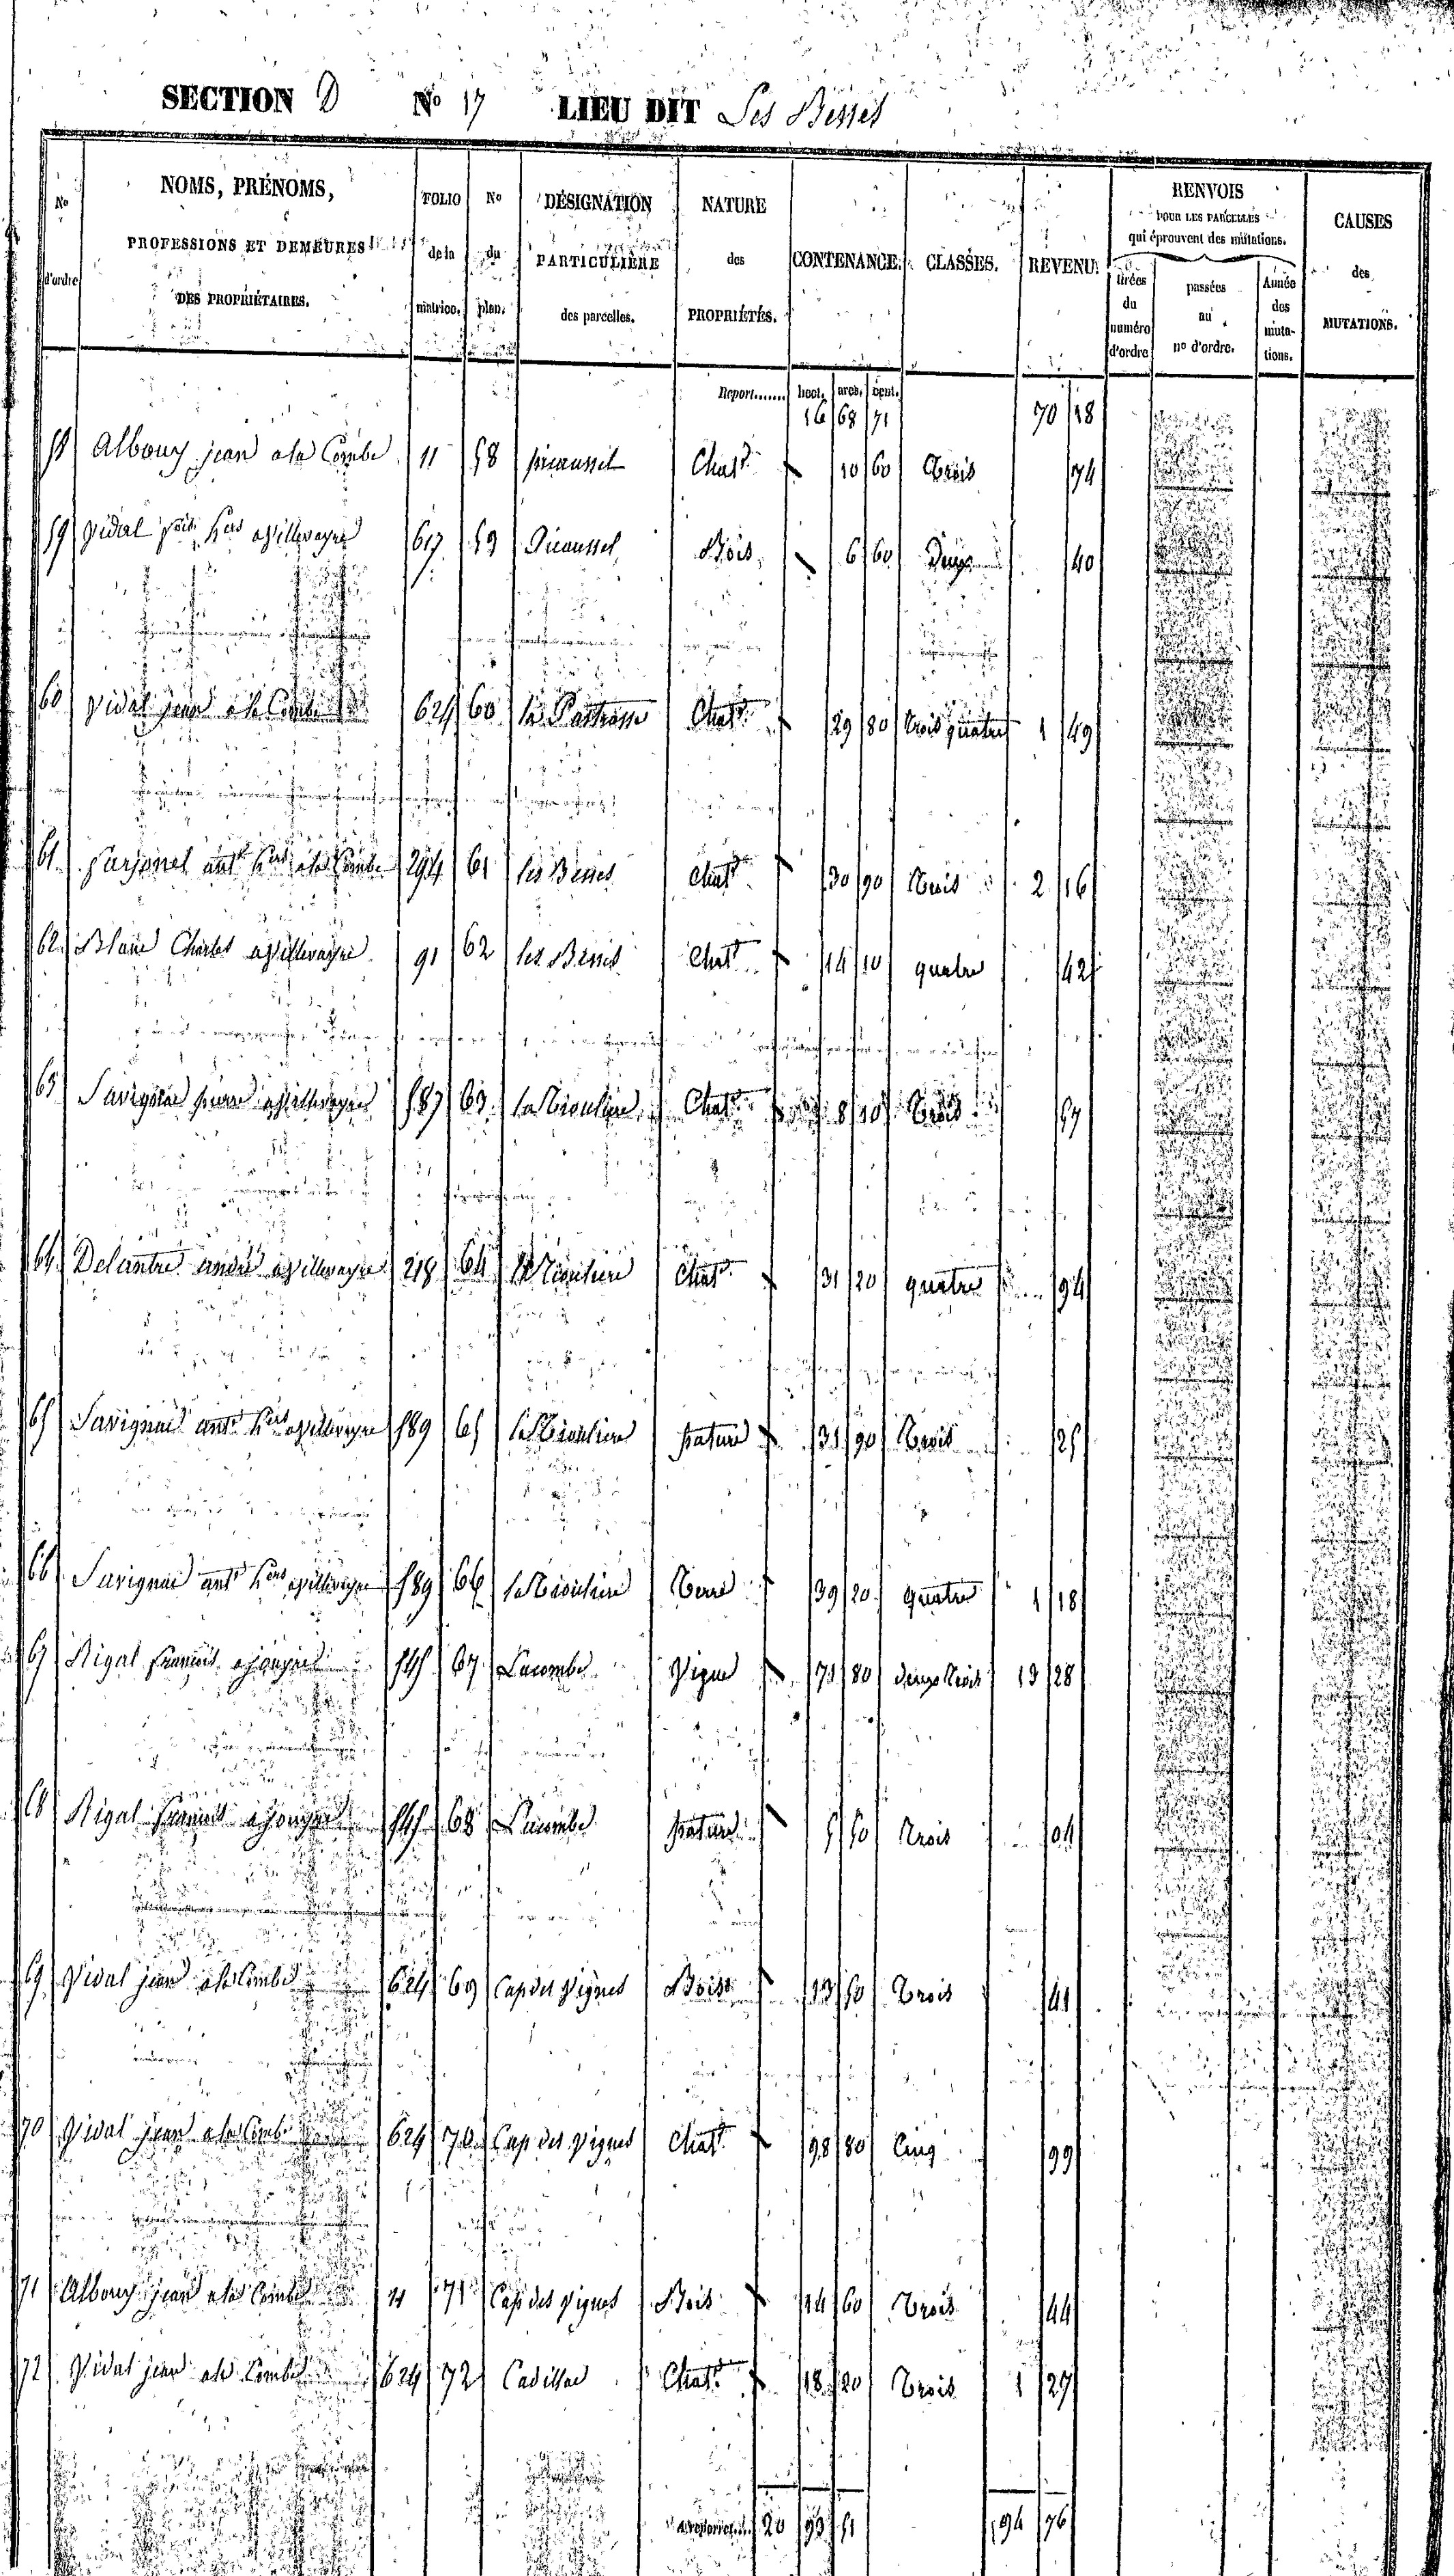 SECTION D No 17 LIEU DIT Les Besses
No d'ordre
NOMS, PRÉNOMS,
PROFESSIONS ET DEMEURES
DES PROPRIÉTAIRES.
FOLIO de la matrice.
No du plan.
DÉSIGNATION
PARTICULIÈRE
des parcelles.
NATURE
des
PROPRIÉTÉS.
CONTENANCE.
CLASSES.
REVENU.
RENVOIS
POUR LES PARCELLES
qui éprouvent des mutations.
tirées du numéro d'ordre
passées au no d'ordre.
Année des mutations.
CAUSES
des
MUTATIONS.
Report....... hect. ares. cent.
16 68 71 70 18
58 Albouy jean a la Combe 11 58 picaussel Chat. 10 60 trois 74
59 Vidal hers a Villevayre 617 59 Picaussel Bois 6 60 Deux 40
60 Vidal jean a la Combe 624 60 Chat. 29 80 trois quatre 1 49
61 Marjonel ant. hers a la Combe 294 61 les Besses Chat. 30 90 trois 2 16
62 Blanc Charles a Villevayre 91 62 les Besses Chat. 14 10 quatre 42
63 Savignac a Villevayre 587 63 Chat. 8 10 trois 57
64 Delautre andré a Villevayre 218 64 Chat. 31 20 quatre 94
65 Savignac ant. hers a Villevayre 589 65 pature 31 90 trois 25
66 Savignac ant. hers a Villevayre 589 66 Terre 39 20 quatre 1 18
67 Rigal francois 545 67 Lacombe Vigne 71 80 deux trois 13 28
68 Rigal francois 545 68 Lacombe pature 5 50 trois 04
69 Vidal jean a la Combe 624 69 Cap des Vignes Bois 13 50 trois 41
70 Vidal jean a la Combe 624 70 Cap des Vignes Chat. 98 80 Cinq 99
71 Albouy jean a la Combe 11 71 Cap des Vignes Bois 14 60 trois 44
72 Vidal jean a la Combe 624 72 Cadillac Chat. 18 20 trois 1 27
a reporter 20 93 51 94 76